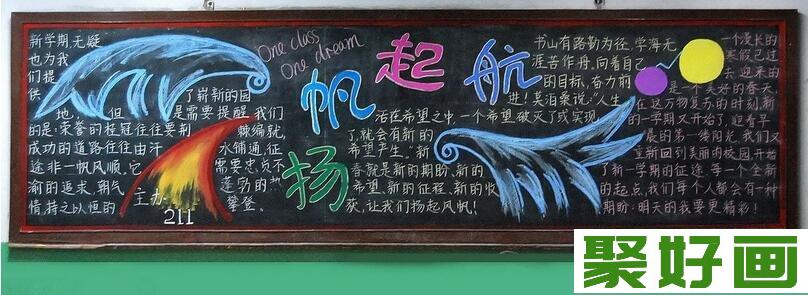 新学期,无疑
也为我
们提
供 了崭新的园
地, 但 是需要提醒我们
的是:荣誉的桂冠往往要荆 棘编就,
成功的道路往往由汗 水铺通,征
途非一帆风顺,它 需要忠贞不
渝的追求,朝气 蓬勃的
情,持之以恒的 攀登。
主办
211
One class
One dream
扬帆起航
书山有路勤为径,学海无
涯苦作舟,向着自己
的目标,奋力前
进!莫泊桑说:"人生
活在希望之中,一个希望破灭了或实现
了,就会有新的
希望产生。"新
春就是新的期盼,新的
希望,新的征程,新的收
获,让我们扬起风帆!
一个漫长的
寒假已过
去,迎来的
是一个美好的春天,
在这万物复苏的时刻,新
的一学期又开始了,迎着早
晨的第一缕阳光,我们又
重新回到美丽的校园,开始
了新一学期的征途,每一个全新
的起点,我们每个人都会有一种
期盼:明天的我要更精彩!
聚好画